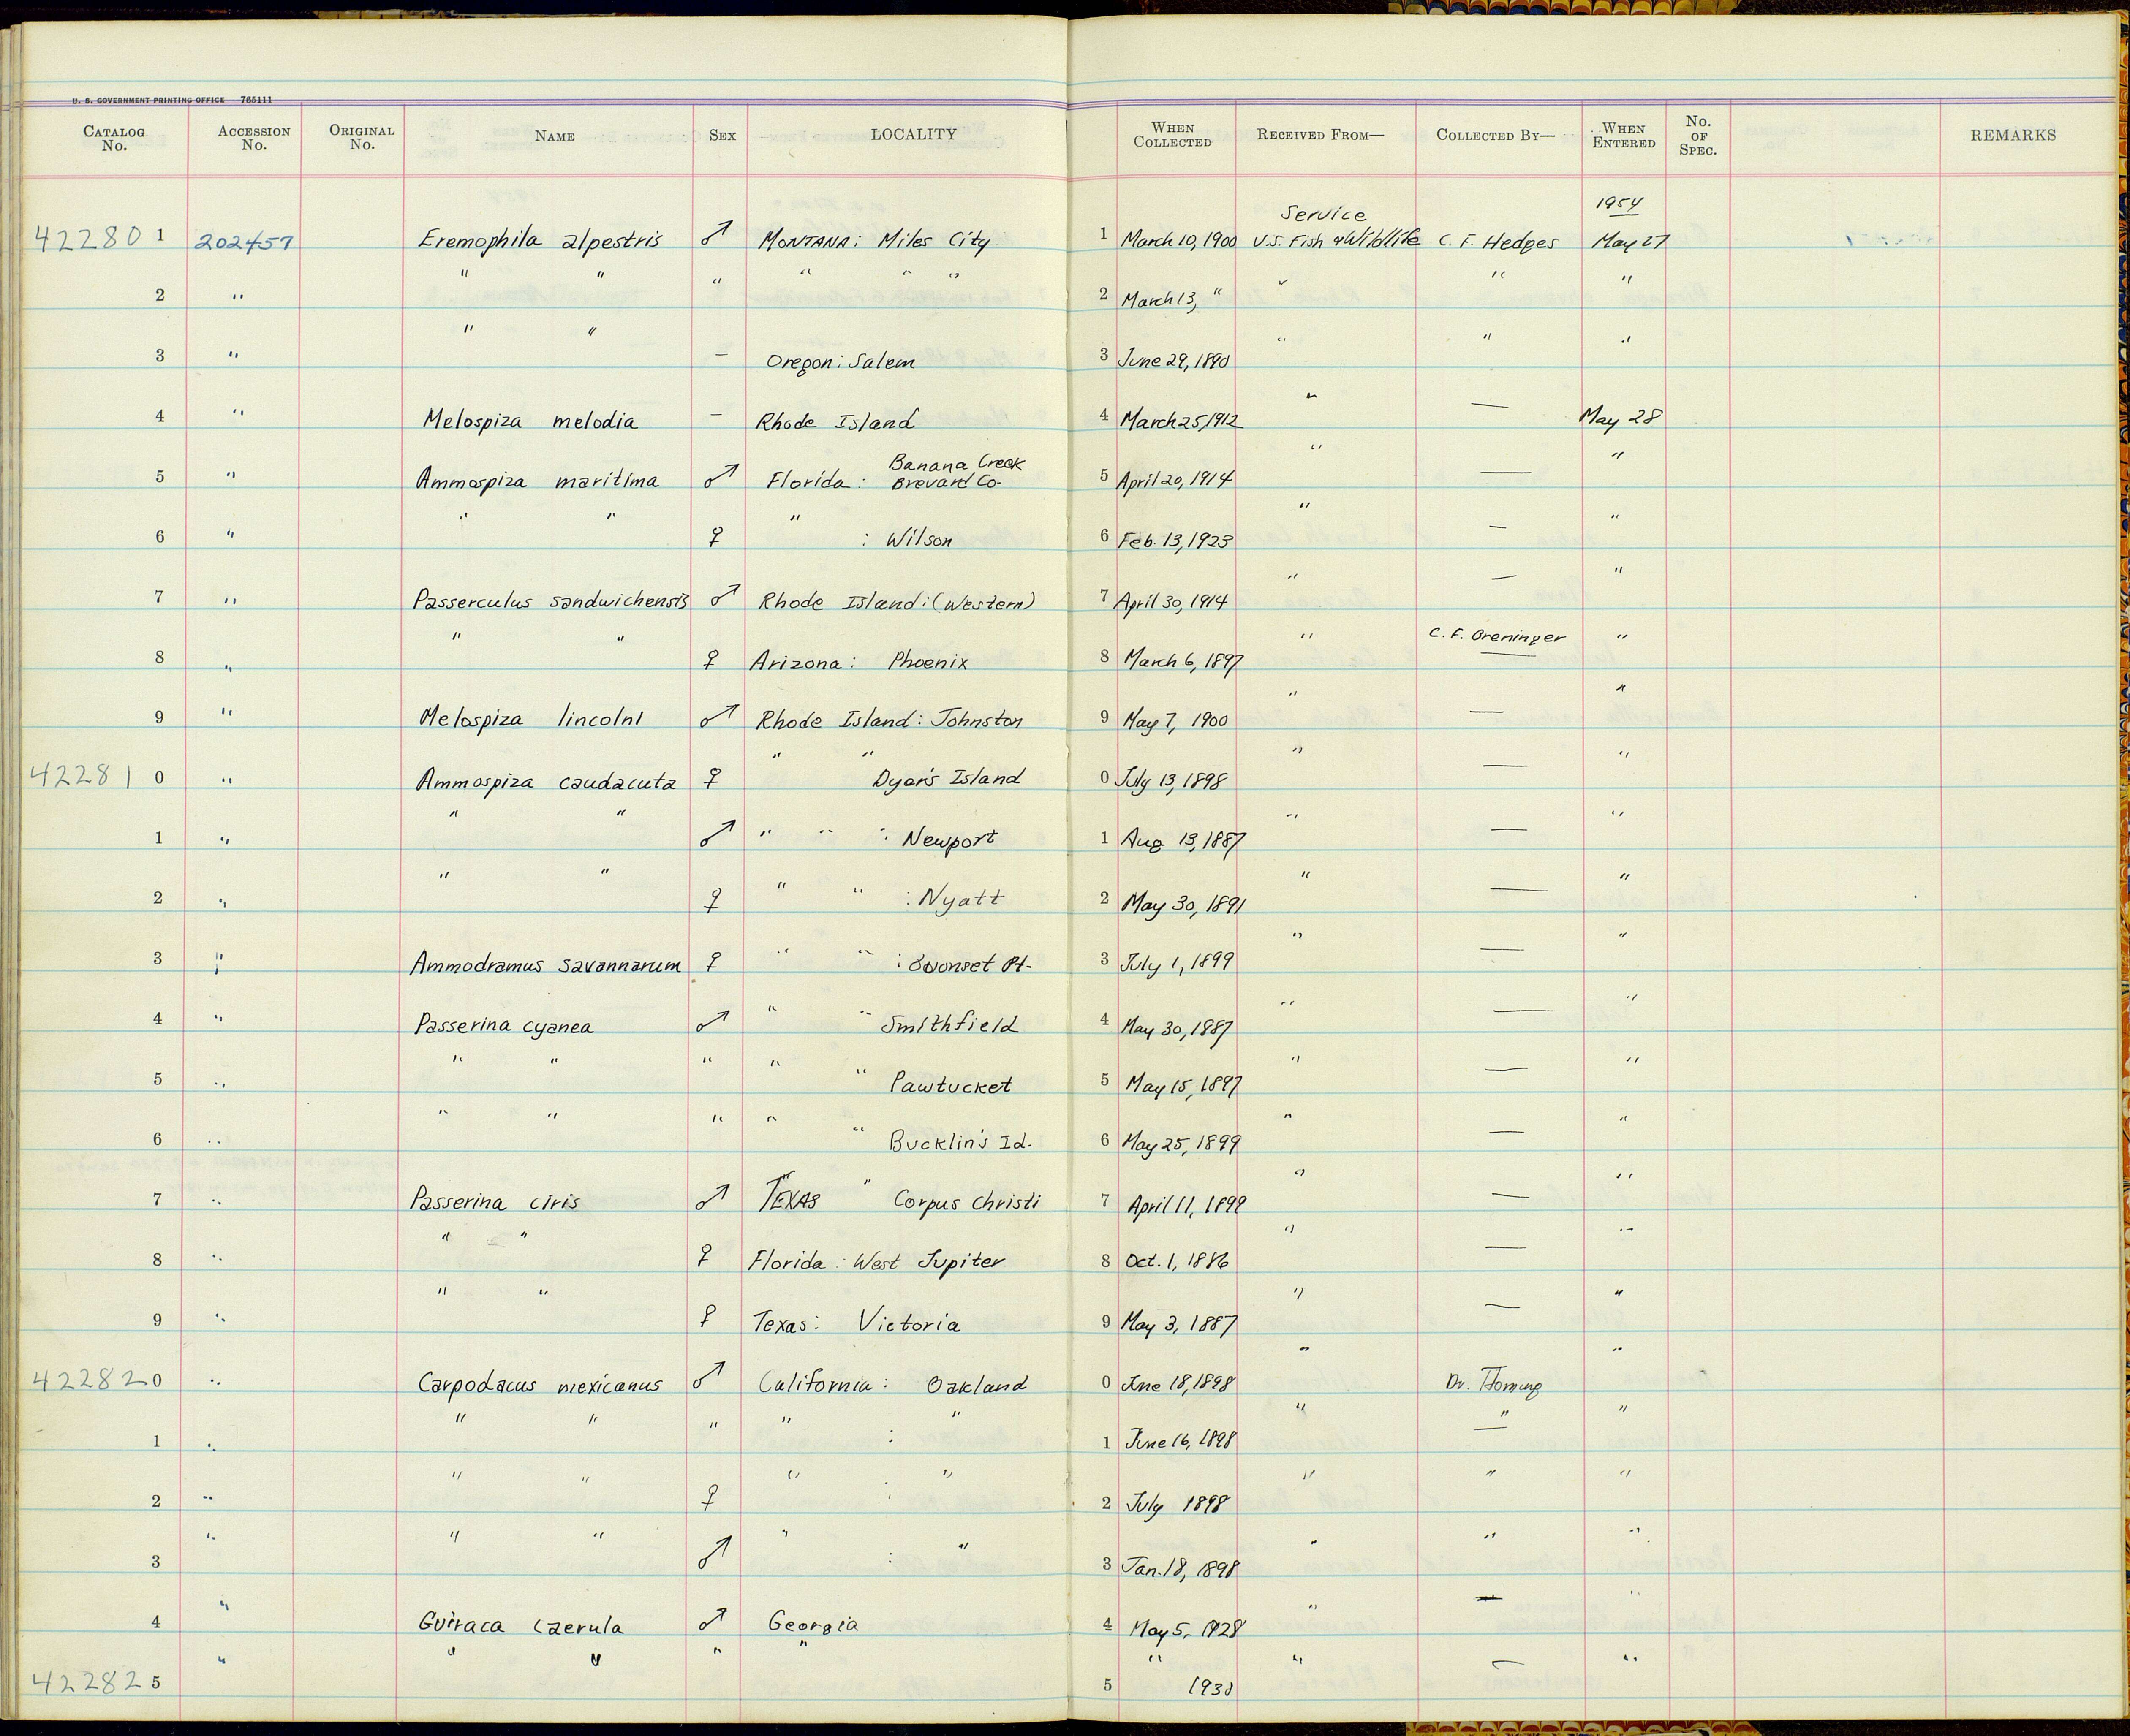 U. S. GOVERNMENT PRINTING OFFICE 765111
CATALOG No. ACCESSION No. ORIGINAL No. NAME SEX LOCALITY WHEN COLLECTED RECEIVED FROM— COLLECTED BY— WHEN ENTERED No. OF SPEC. REMARKS
Service 1954
422801 202457 Eremophila alpestris ♂ MONTANA: Miles City 1 March 10, 1900 U.S. Fish & Wildlife C. F. Hedges May 27
2 " " " " " " " 2 March 13, " " " "
3 " " " — Oregon: Salem 3 June 29, 1890 " " "
4 " Melospiza melodia — Rhode Island 4 March 25, 1912 " — May 28
5 " Ammospiza maritima ♂ Florida: Banana Creek Brevard Co. 5 April 20, 1914 " — "
6 " " " ♀ " : Wilson 6 Feb. 13, 1923 " — "
7 " Passerculus sandwichensis ♂ Rhode Island: (Western) 7 April 30, 1914 " — "
8 " " " ♀ Arizona: Phoenix 8 March 6, 1897 " C. F. Breninger "
9 " Melospiza lincolni ♂ Rhode Island: Johnston 9 May 7, 1900 " — "
422810 " Ammospiza caudacuta ♀ " " Dyer's Island 0 July 13, 1898 " — "
1 " " " ♂ " " : Newport 1 Aug 13, 1887 " — "
2 " " " ♀ " " : Nyatt 2 May 30, 1891 " — "
3 " Ammodramus savannarum ♀ " " : Pt. 3 July 1, 1899 " — "
4 " Passerina cyanea ♂ " " Smithfield 4 May 30, 1887 " — "
5 " " " " " " Pawtucket 5 May 15, 1897 " — "
6 " " " " " " Bucklin's Id. 6 May 25, 1899 " — "
7 " Passerina ciris ♂ TEXAS " Corpus Christi 7 April 11, " — "
8 " " " ♀ Florida: West Jupiter 8 Oct. 1, 1886 " — "
9 " " " ♀ Texas: Victoria 9 May 3, 1887 " — "
422820 " Carpodacus mexicanus ♂ California: Oakland 0 June 18, 1898 " Dr. "
1 " " " " " : " 1 June 16, 1898 " " "
2 " " " ♀ " : " 2 July 1898 " " "
3 " " " ♂ " : " 3 Jan. 18, 1898 " " "
4 " Guiraca caerula ♂ Georgia 4 May 5, 1928 " — "
422825 " " " " " 5 " " — "